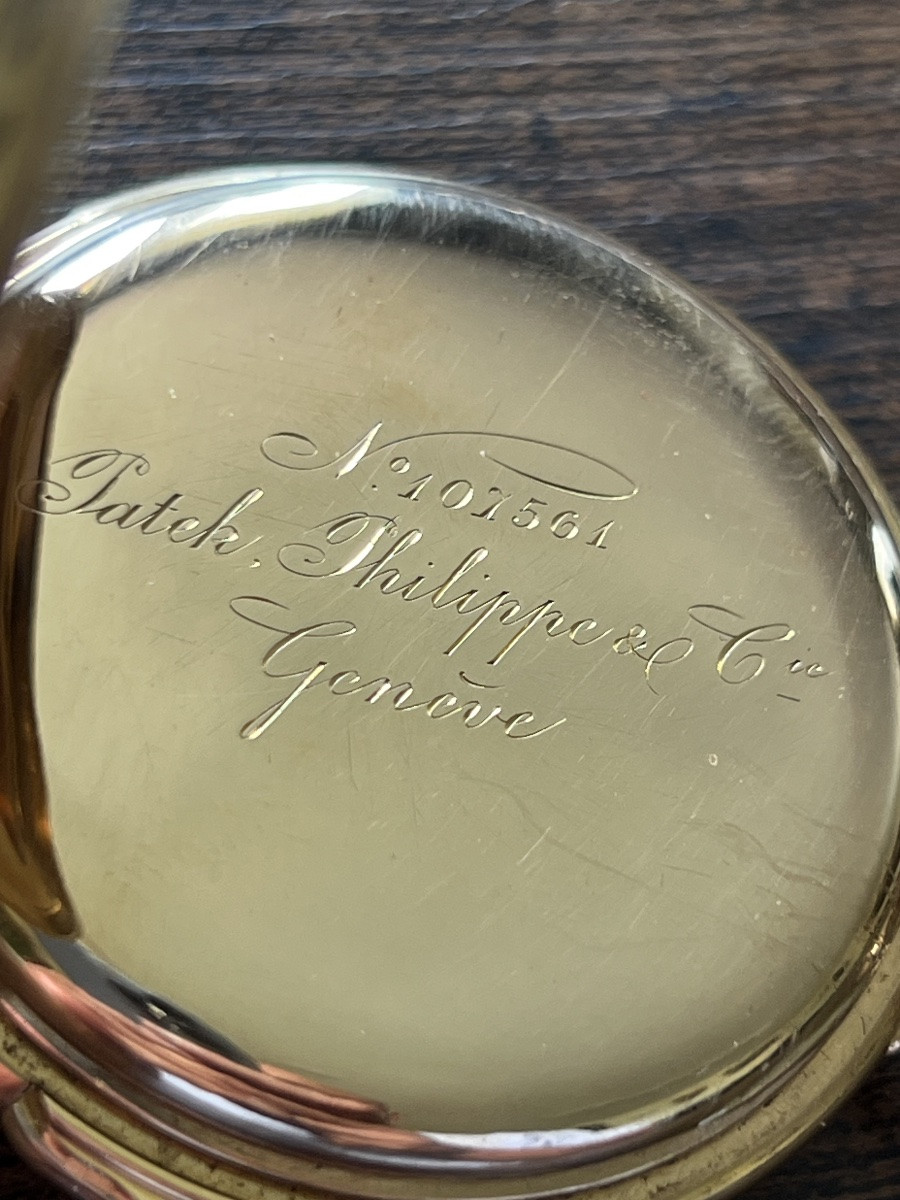 Nº. 107561
Patek, Philippe & Cie
Genève